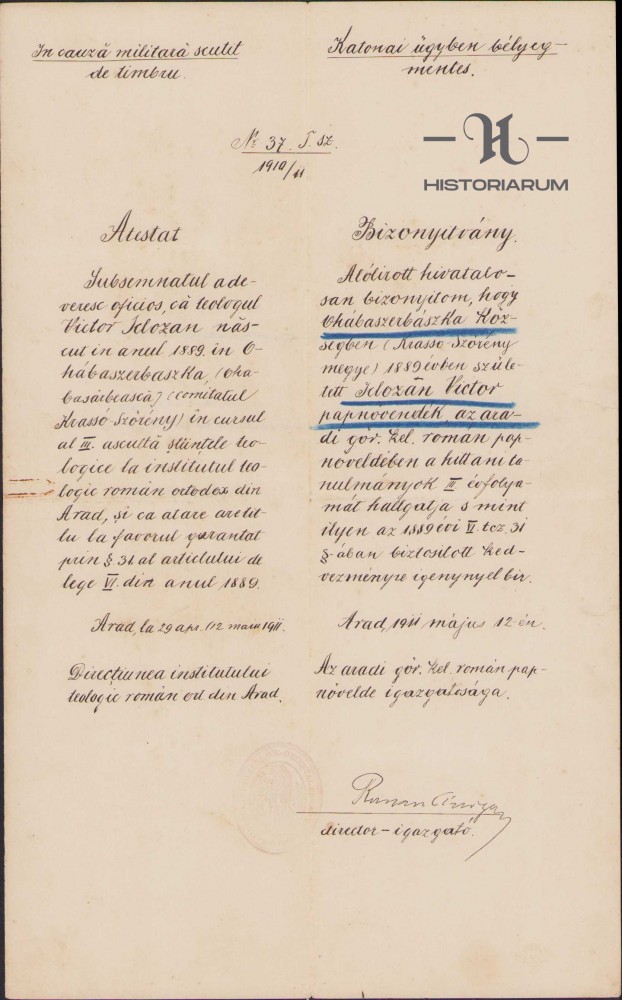 In cauză militară scutit
de timbru.
Katonai ügyben bélyeg-
mentes.
HISTORIARUM
№ 37. T. sz.
1910/11
Atestat
Subsemnatul ade-
veresc oficios, că teologul
Victor Iclozan năs-
cut in anul 1889. in O-
hábaszerbaszka, (Oha-
basârbească) (comitatul
Krassó-Szörény) in cursul
al III. ascultă științele teo-
logice la institutul teo-
logic român ortodox din
Arad, și ca atare are tit-
lu la favorul garantat
prin § 31 al articlului de
lege VI. din anul 1889.
Arad, la 29 apr. /12 maiu 1911.
Direcțiunea institutului
teologic român ort din Arad.
Bizonyitvány.
Alólirott hivatalo-
san bizonyitom, hogy
Ohábaszerbászka köz-
ségben (Krassó-Szörény
megye) 1889 évben szüle-
tett Iclozán Victor
papnövendék, az ara-
di gör. kel. román pap-
növeldében a hittani ta-
nulmányok III évfolya-
mát hallgatja s mint
ilyen az 1889 évi VI. tcz. 31
§-ában biztositott ked-
vezményre igénynyel bir.
Arad, 1911 május 12 én.
Az aradi gör. kel. román pap-
növelde igazgatósága.
director - igazgató.